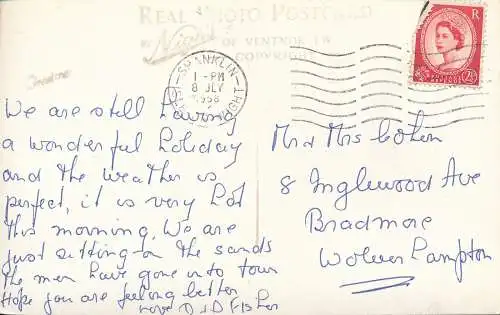 REAL PHOTO POSTCARD
BY Nigh OF VENTNOR I.W
COPYRIGHT
SHANKLIN
1 - PM
8 JLY
1958
I. OF WIGHT
R
2½
We are still having
a wonderful holiday
and the weather is
perfect, it is very hot
this morning. We are
just sitting on the sands
the men have gone into town
Hope you are feeling better
love D & D Fisher
Mr & Mrs Cohen
8 Inglewood Ave
Bradmore
Wolverhampton